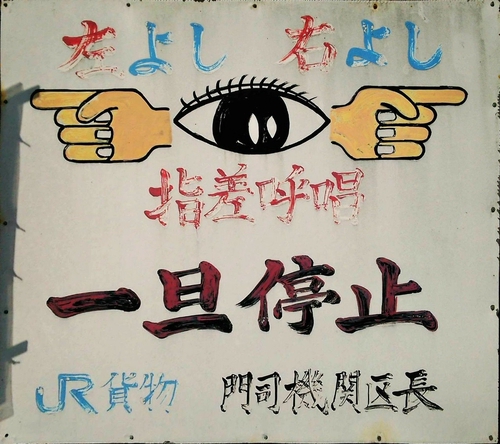 左よし 右よし
指差呼唱
一旦停止
JR貨物 門司機関区長